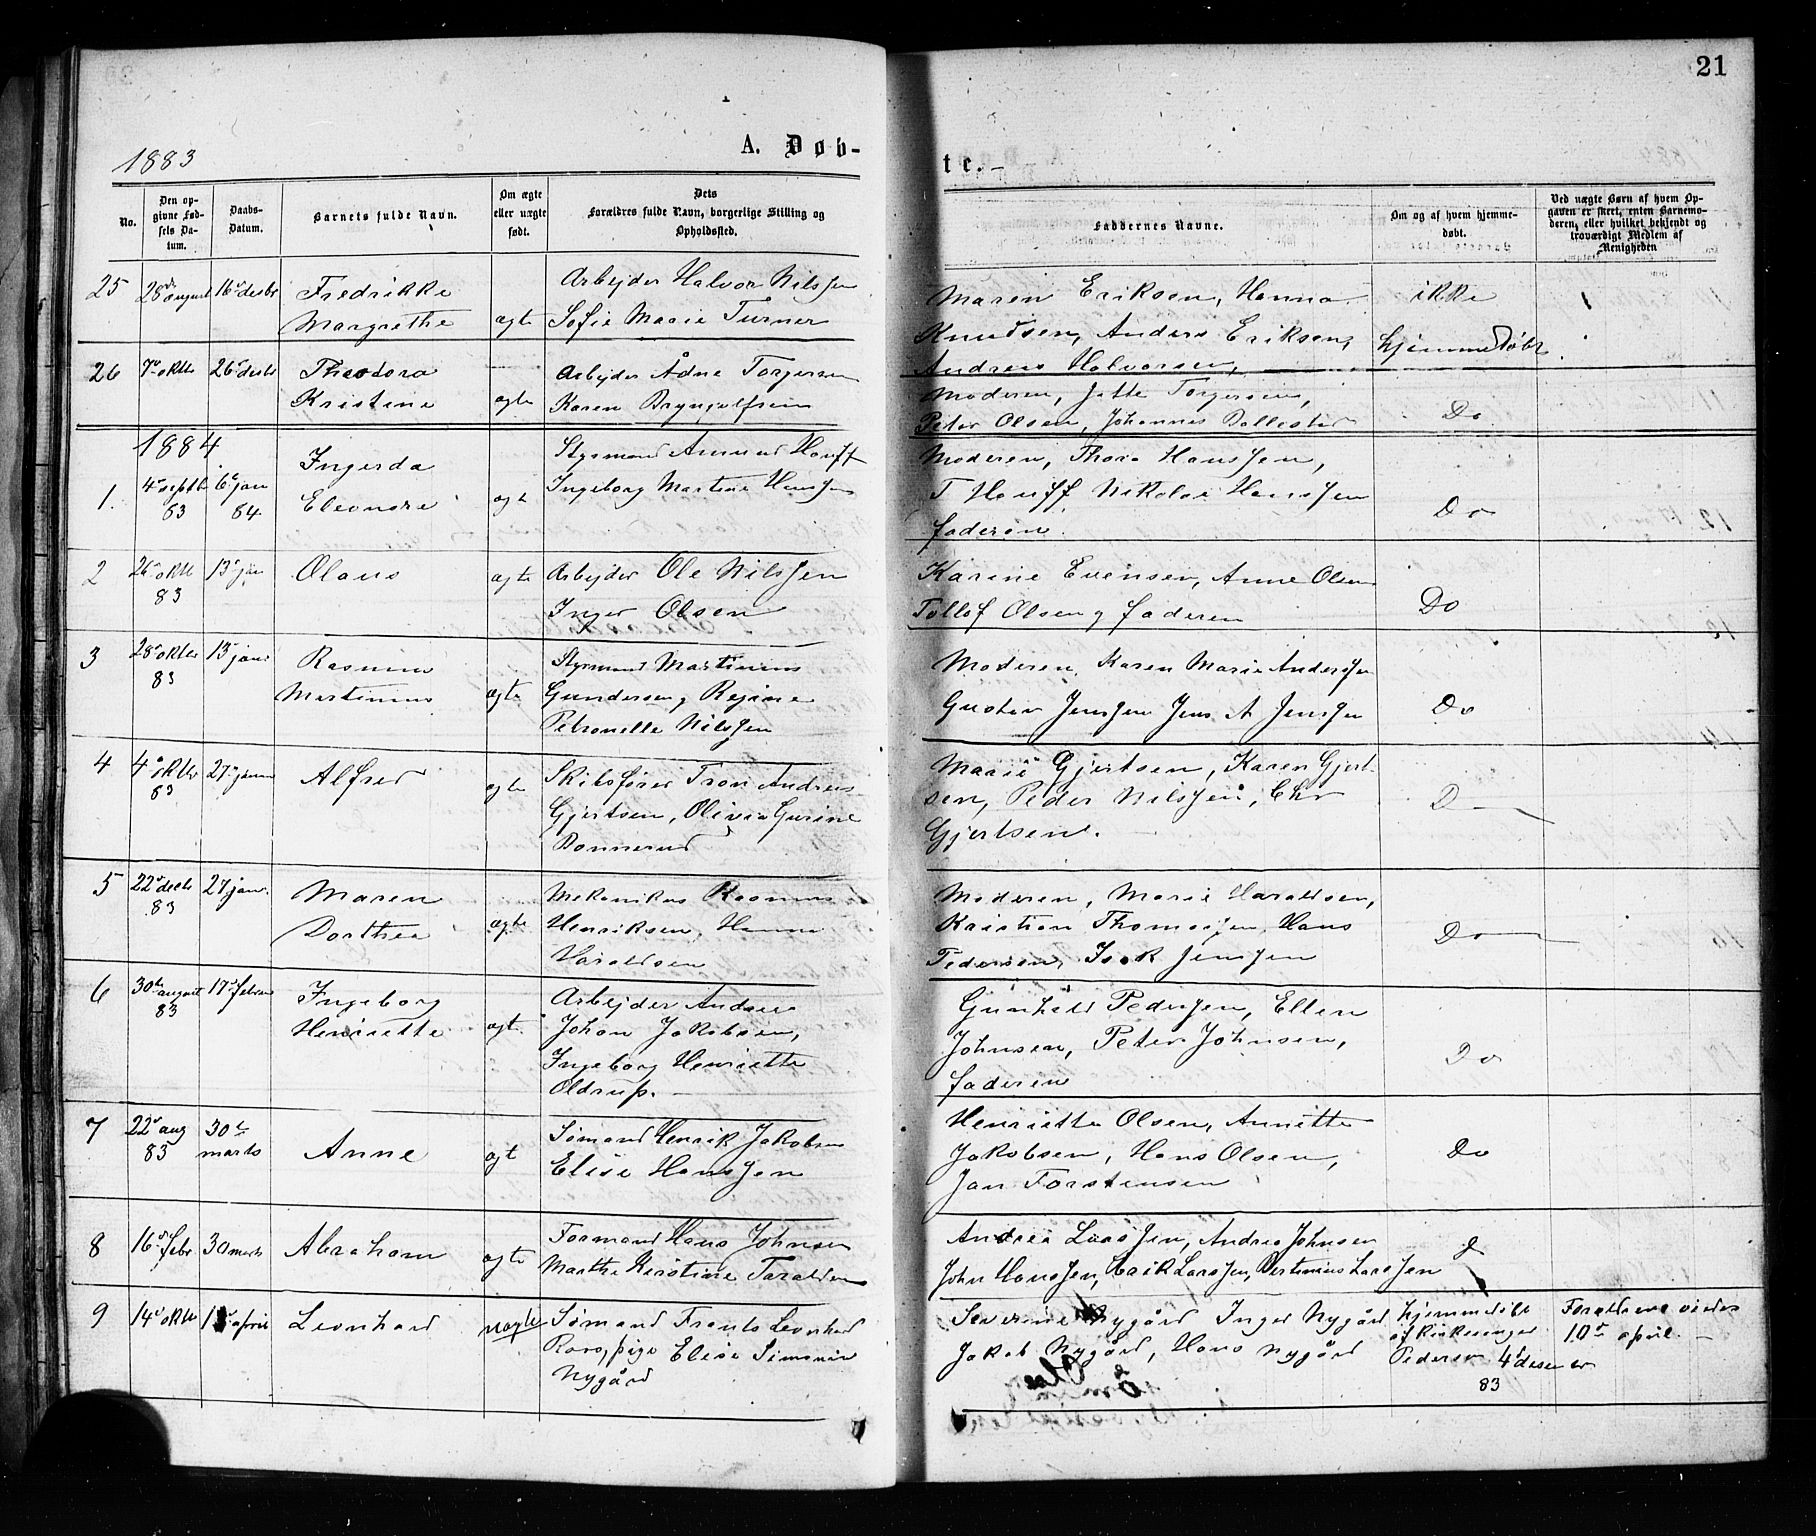 21
1883
A. Døb-
te.
No.
Den op-
givne Fød-
sels Da-
tum.
Daabs-
Datum.
Barnets fulde Navn.
Om ægte
eller uægte
født.
Dets
Forældres fulde Navn, borgerlige Stilling og
Opholdssted.
Faddernes Navne.
Om og af hvem hjemme-
døbt.
Ved uægte Børn af hvem Op-
gaven er skeet, enten Barnemo-
deren, eller hvilket bekjendt og
troværdigt Medlem af
Menigheden
25
28de august
16de desbr
Fredrikke
Margrethe
ægte
Arbejder Halvor Nilssen
Sofie Marie Turner
Maren Eriksen, Hanna
Knudsen, Anders Eriksen,
Andreas Halvorsen,
ikke
hjemmedøbt
26
7de oktbr
26de desbr
Theodora
Kristine
ægte
Arbejder Ådne Torgersen
Karen Bryngelfsein
Moderen, Jette Torgersen,
Peter Olsen, Johannes
Do
1884
1.
4de septb
83
6te jan
84.
Ingerda
Eleonore
ægte
Styrmand Amund Houff
Ingeborg Martine Hanssen
Moderen, Thora Hanssen,
T Houff Nikolai Hanssen
faderen.
Do
2
26de oktb
83
13de jan
Olaus
ægte
Arbejder Ole Nilssen
Inger Olsen
Karine Evensen, Anne Olsen
Tollof Olsen og faderen
Do
3
28de oktbr
83
13de janr
Rasmus
Martinius
ægte
Styrmand Martinius
Gundersen og Regine
Petronelle Nilssen
Moderen, Karen Marie Anderssen
Gustav Jenssen Jens A Jenssen
Do
4
4de oktbr
83
27de januar
Alfred
ægte
Skibsfører Tron Andreas
Gjertsen, Olivia Gurine
Bonnerud
Marie Gjertsen, Karen Gjert-
sen, Peder Nilssen, Chr
Gjertsen.
D
5
22de decb
83
27 janr.
Maren
Dorthea
ægte
Mekanikus Rasmus
Henriksen, Hanna
Haraldsen
Moderen, Marie Haraldsen,
Kristian Thomassen, Hans
Pedersen, Isak Jenssen
Do
6
30te august
83
17de februar
Ingeborg
Henriette
ægt.
Arbejder Andreas
Johan Jakobsen,
Ingeborg Henriette
Oldrup.
Gunhild Pederssen, Ellen
Johnsen, Peter Johnsen,
faderen
Do
7
22de aug
83
30te
marts
Anne
ægt
Sømand Henrik Jakobsen
Elise Hanssen
Henriette Olsen, Annette
Jakobsen, Hans Olsen,
Jan Torstensen
Do
8
16de febr
30 marts
Abraham
ægte
Formand Hans Johnsen
Marthe Kirstine Taraldsen
Andrea Larssen, Andrea Johnsen
John Hanssen, Erik Larssen, Bertinius Larssen
D
9
14de oktbr
april
Leonhard
uægte
Sømand Frants Leonhard
Roos, pige Elise
Nygård
Severine Nygård Inger Nygård
Jakob Nygård, Hans Nygård
hjemmedøbt
af Kirkesanger
Pedersen 4de desember
83
Forældrene viedes
10de april.